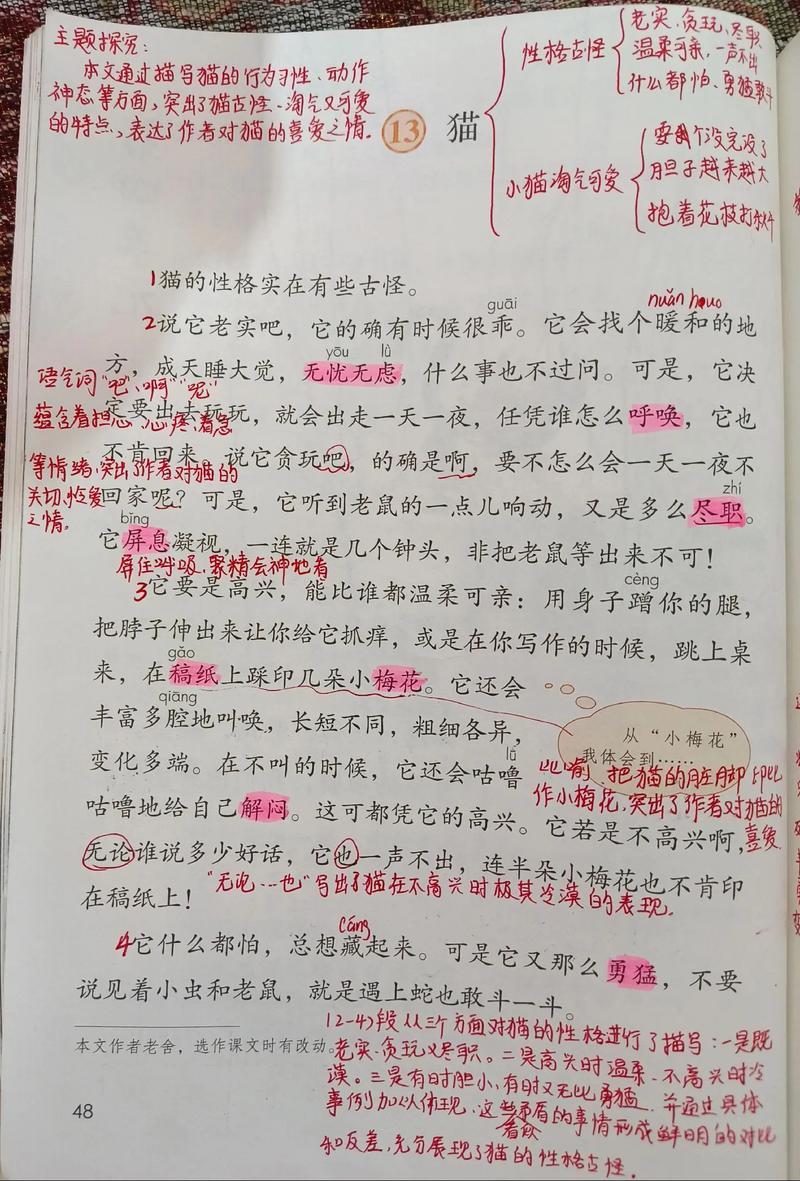 主题探究:
本文通过描写猫的行为习性、动作
神态等方面,突出了猫古怪、淘气又可爱
的特点,表达了作者对猫的喜爱之情.
13 猫
性格古怪
老实、贪玩、尽职
温柔可亲,一声不出
什么都怕、勇猛敢斗
小猫淘气可爱
要个没完没了
胆子越来越大
抱着花枝打秋千
1猫的性格实在有些古怪。
guāi
nuǎn huo
2说它老实吧,它的确有时候很乖。它会找个暖和的地
yōu lǜ
方,成天睡大觉,无忧无虑,什么事也不过问。可是,它决
语气词"吧""啊""呢"
定要出去玩玩,就会出走一天一夜,任凭谁怎么呼唤,它也
蕴含着担心、心疼、着急
不肯回来。说它贪玩吧,的确是啊,要不怎么会一天一夜不
等情绪,突出了作者对猫的
zhí
回家呢?可是,它听到老鼠的一点儿响动,又是多么尽职。
关切、怜爱
之情。
bǐng
它屏息凝视,一连就是几个钟头,非把老鼠等出来不可!
屏住呼吸、聚精会神地看
cèng
3它要是高兴,能比谁都温柔可亲:用身子蹭你的腿,
把脖子伸出来让你给它抓痒,或是在你写作的时候,跳上桌
gǎo
来,在稿纸上踩印几朵小梅花。它还会
qiāng
丰富多腔地叫唤,长短不同,粗细各异,
从“小梅花”
我体会到……
变化多端。在不叫的时候,它还会咕噜
lū
比喻,把猫的脏脚印比
咕噜地给自己解闷。这可都凭它的高兴。它若是不高兴啊,
作小梅花,突出了作者对猫的
喜爱.
无论谁说多少好话,它也一声不出,连半朵小梅花也不肯印
在稿纸上!
"无论…也"写出了猫在不高兴时极其冷漠的表现.
cáng
4它什么都怕,总想藏起来。可是它又那么勇猛,不要
说见着小虫和老鼠,就是遇上蛇也敢斗一斗。
本文作者老舍,选作课文时有改动。
(2-4)段从三个方面对猫的性格进行了描写:一是既
老实、贪玩又尽职。二是高兴时温柔、不高兴时冷
漠。三是有时胆小,有时又无比勇猛.并通过具体
事例加以体现.这些看似矛盾的事情形成鲜明的对比
和反差,充分展现了猫的性格古怪.
48